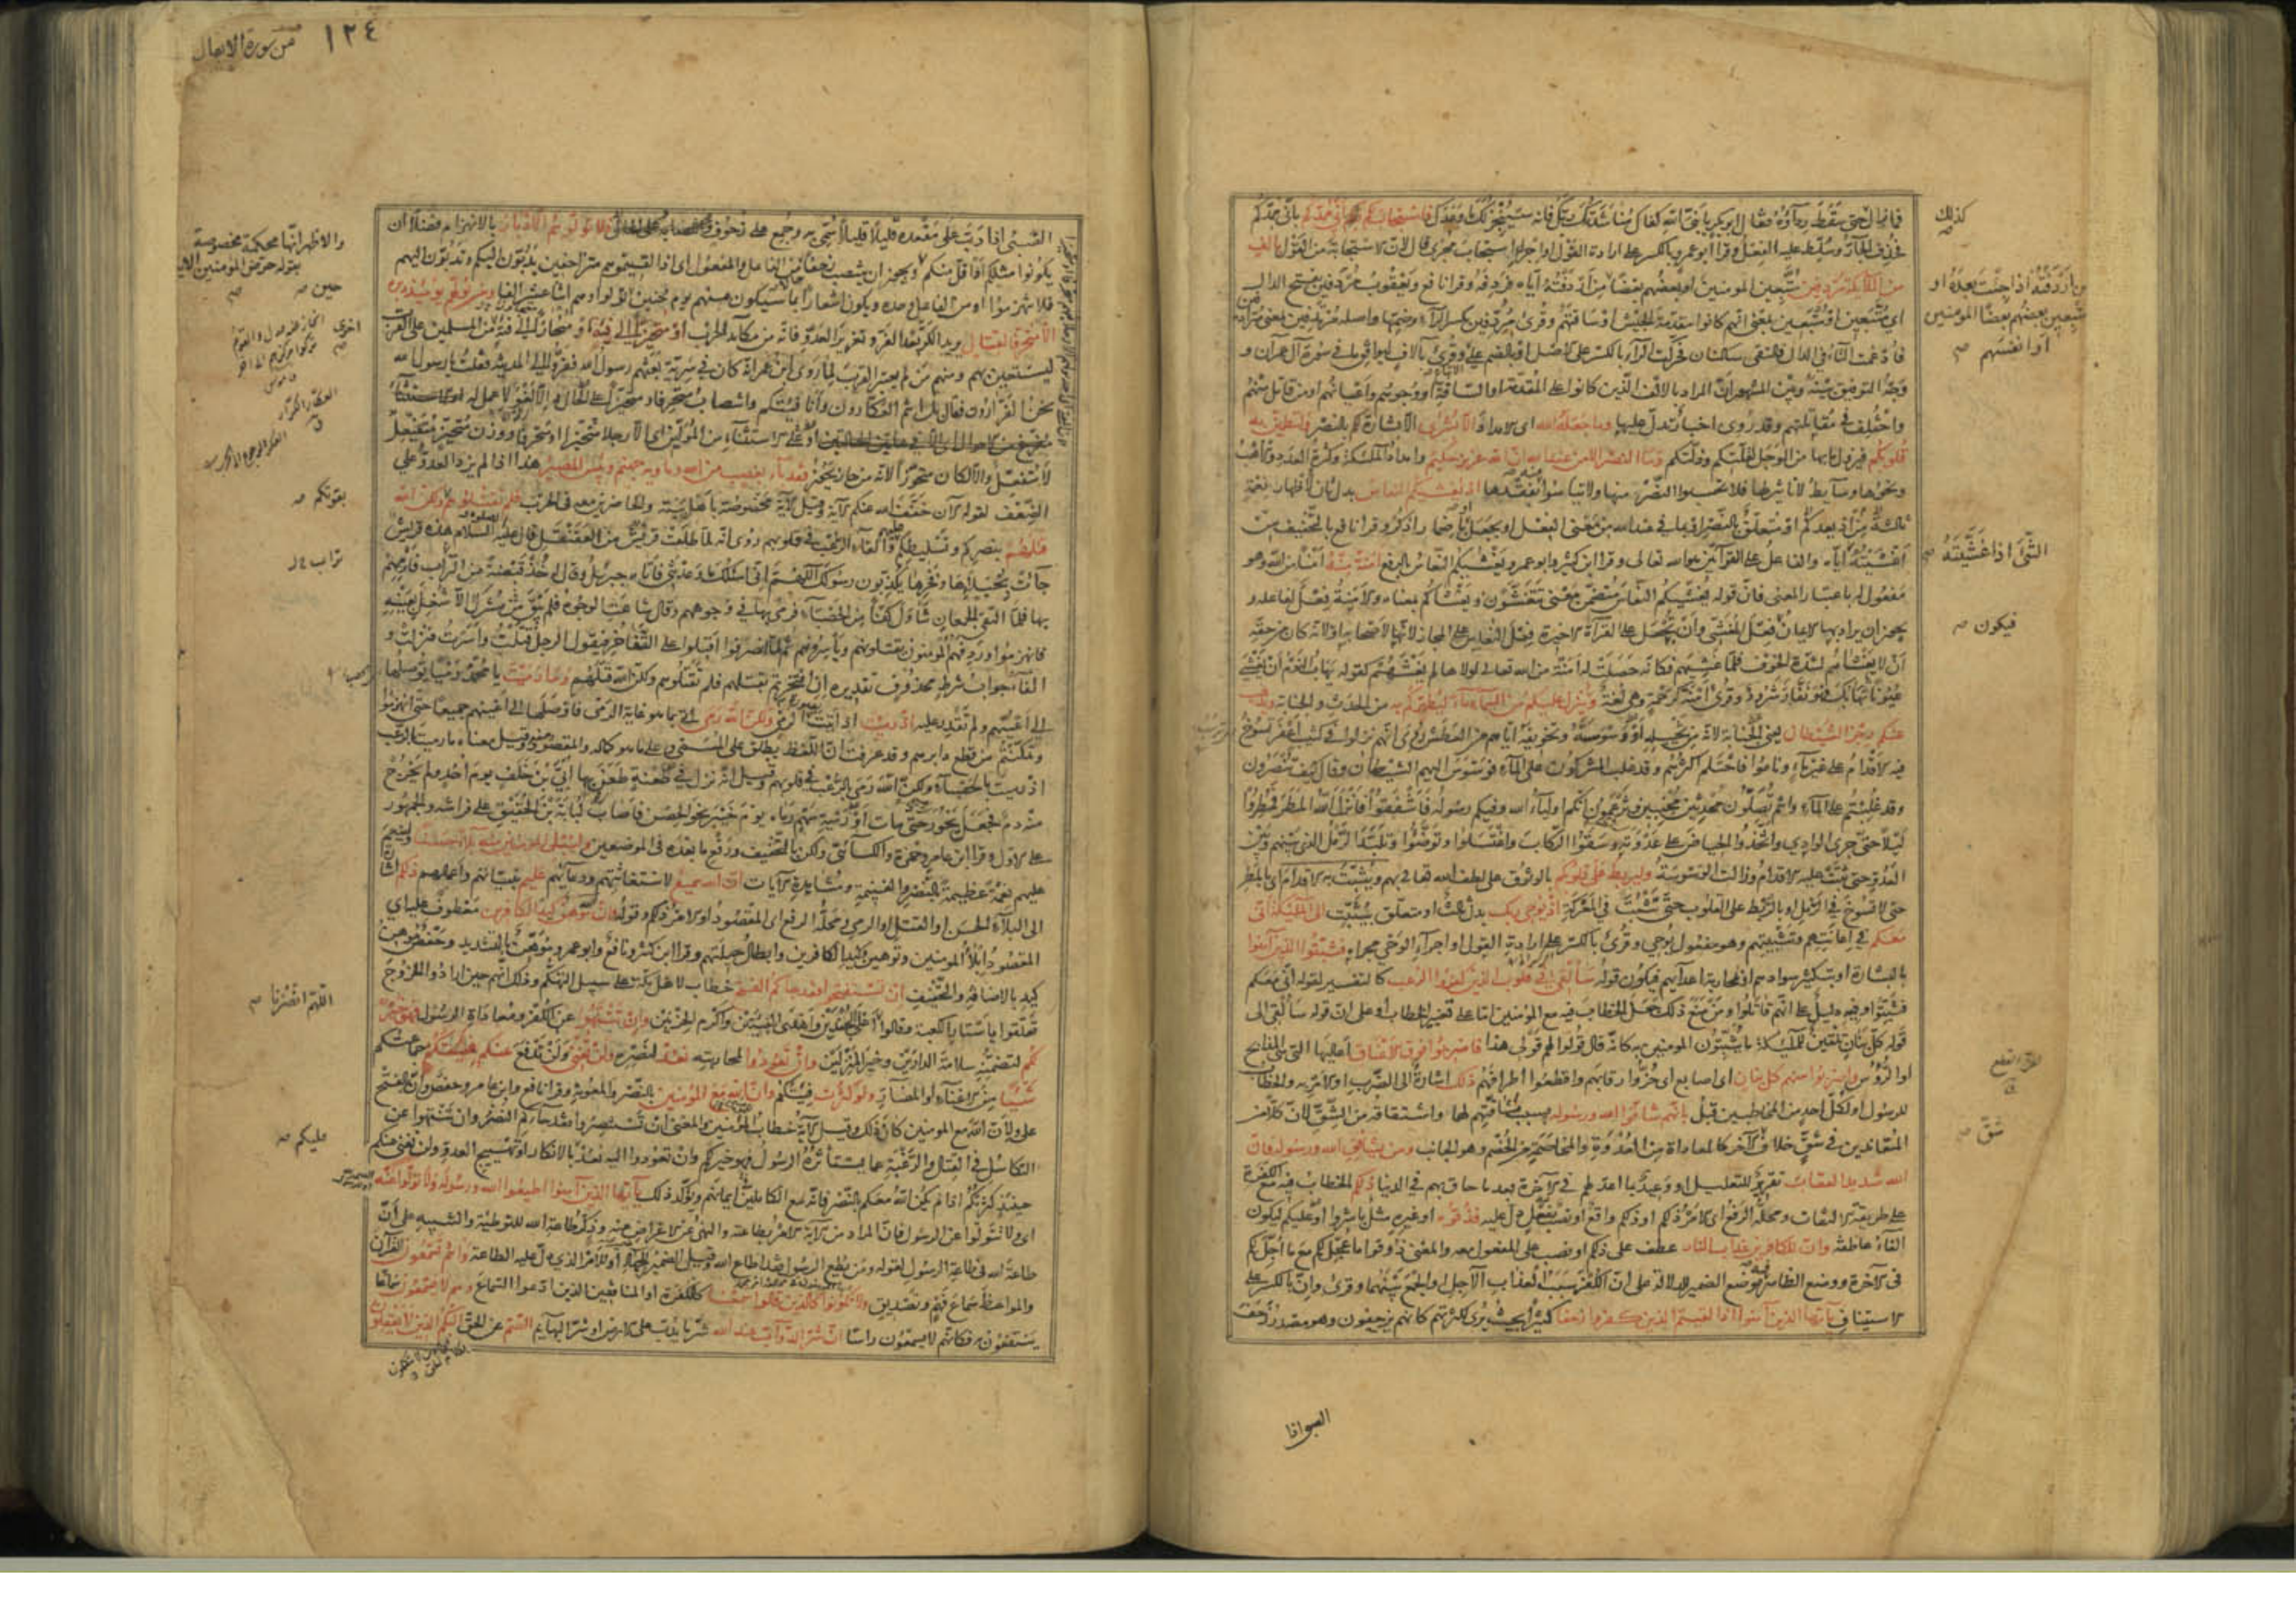 كذلك
فما زال حتى سقط رداؤه فقال ابو بكر يا نبي الله كفاك مناشدتك ربك فانه سينجز لك ما وعدك فاستجاب لكم اني ممدكم باني ممدكم
فحذف الجار وسلط عليه الفعل وقرا ابو عمرو بالكسر على ارادة القول او اجراء استجاب مجرى قال لان الاستجابة من القول بالف
من الملائكة مردفين متبعين المومنين او بعضهم بعضا من اردفته اياه فردفه وقرا نافع ويعقوب مردفين بفتح الدال
من اردفته اذا جئت بعده او
متبعين بعضهم بعضا المومنين
او انفسهم صح
اي متبعين او متبعين بمعنى انهم كانوا مقدمة الجيش او ساقتهم وقرئ مردفين بكسر الراء وضمها واصله مرتدفين بمعنى مترادفين
فادغمت التاء في الدال فالتقى ساكنان فحركت الراء بالكسر على الاصل او بالضم على الاتباع وقرئ بالاف ليوافق ما في سورة آل عمران و
وجه التوفيق بينه وبين المشهور ان المراد بالالف الذين كانوا على المقدمة او الساقة او وجوههم واعيانهم او من قاتل منهم
واختلف في مقاتلتهم وقد روى اخبار تدل عليها وما جعله الله اى الامداد الا بشرى الا بشارة لكم بالنصر ولتطمئن به
قلوبكم فيزول ما بها من الوجل لقلتكم وذلتكم وما النصر الا من عند الله ان الله عزيز حكيم وامداد الملائكة وكثرة العدد والاهب
ونحوها وسايط لا تاثير لها فلا تحسبوا النصر منها ولا تياسوا منه بفقدها اذ يغشيكم النعاس بدل ثان لاظهار نعمة
ثالثة من اذ يعدكم او متعلق بالنصر او بما في عند الله من معنى الفعل او بجعل او باضمار اذكر وقرا نافع بالتخفيف من
اغشيته اياه والفاعل على القراتين هو الله تعالى وقرا ابن كثير وابو عمرو يغشاكم النعاس بالرفع امنة منه امنا من الله وهو
الشئ اذا غشيته صح
مفعول له باعتبار المعنى فان قوله يغشيكم النعاس متضمن معنى تنعسون ويغشاكم بمعناه والامنة فعل لفاعله و
يجوز ان يراد بها الايمان فعل المغشي وان تجعل على القرآة الاخيرة فعل النعاس على المجاز لانها لاصحابه او لانه كان من حقه
فيكون صح
ان لا يغشاهم لشدة الخوف فلما غشيهم فكانه حصلت له امنة من الله تعالى لولاها لم يغشهم كقوله يهاب النوم ان يغشى
عيونا تهابك فهو نفار شرود وقرئ امنة كرحمة وهي لغة وينزل عليكم من السماء ماء ليطهركم به من الحدث والجنابة ويذهب
عنكم رجز الشيطان يعنى الجنابة لانه من تخييله او وسوسته وتخويفه اياهم من العطش روى انهم نزلوا في كثيب اعفر تسوخ
فيه الاقدام على غير ماء وناموا فاحتلم اكثرهم وقد غلب المشركون على الماء فوسوس اليهم الشيطان وقال كيف تنصرون
وقد غلبتم على الماء وانتم تصلون محدثين مجنبين وتزعمون انكم اولياء الله وفيكم رسوله فاشفقوا فانزل الله المطر فمطروا
ليلا حتى جرى الوادي واتخذوا الحياض على عدوته وسقوا الركاب واغتسلوا وتوضوا وتلبد الرمل الذي بينهم وبين
العدو حتى ثبت عليه الاقدام وزالت الوسوسة وليربط على قلوبكم بالوثوق على لطف الله تعالى بهم ويثبت به الاقدام اى بالمطر
حتى لا تسوخ في الرمل او بالربط على القلوب حتى تثبت في المعركة اذ يوحي ربك بدل ثالث او متعلق بيثبت الى الملئكة اني
معكم في اعانتهم وتثبيتهم وهو مفعول يوحي وقرئ بالكسر على ارادة القول او اجراء الوحي مجراه فثبتوا الذين آمنوا
بالبشارة او بتكثير سوادهم او محاربة اعدآئهم فيكون قوله سألقي في قلوب الذين كفروا الرعب كالتفسير لقوله اني معكم
فثبتوا وفيه دليل على انهم قاتلوا ومن منع ذلك جعل الخطاب فيه مع المومنين اما على تغيير الخطاب او على ان قوله سالقي الى
قوله كل بنان تلقين للملئكة ما يثبتون المومنين به كانه قال قولوا لهم قولي هذا فاضربوا فوق الاعناق اعاليها التي هي المذابح
او الرؤس واضربوا منهم كل بنان اى اصابع اى حزوا رقابهم واقطعوا اطرافهم ذلك اشارة الى الضرب او الامر به والخطاب
للرسول او لكل احد من المخاطبين قبل بانهم شاقوا الله ورسوله بسبب مشاقتهم لهما واشتقاقه من الشق لان كلا من
المتعاندين في شق خلاف شق الآخر كالمعاداة من العدوة والمخاصمة من الخصم وهو الجانب ومن يشاقق الله ورسوله فان
شق صح
الله شديد العقاب تقرير للتعليل او وعيد بما اعد لهم في الآخرة بعد ما حاق بهم في الدنيا ذلكم الخطاب فيه مع الكفرة
على طريقة الالتفات ومحله الرفع اى الامر ذلكم او ذلكم واقع او نصب بفعل دل عليه فذوقوه او غيره مثل باشروا او عليكم ليكون
الفاء عاطفة وان للكافرين عذاب النار عطف على ذلكم او نصب على المفعول معه والمعنى ذوقوا ما عجل لكم مع ما اجل لكم
في الآخرة ووضع الظاهر فيه موضع الضمير للدلالة على ان الكفر سبب العذاب الآجل او الجمع بينهما وقرئ وان بالكسر على
الاستيناف يا ايها الذين آمنوا اذا لقيتم الذين كفروا زحفا كثيرا بحيث يرى لكثرتهم كانهم يزحفون وهو مصدر زحف
من سورة الانفال ١٢٤
الصبي اذا دب على مقعده قليلا قليلا سمي به وجمع على زحوف فلا تولوهم الادبار بالانهزام فضلا ان
يكونوا مثلكم او اقل منكم
والاظهر انها محكمة مخصوصة
بقوله حرض المومنين الاية
ويجوز ان ينتصب زحفا من الفاعل والمفعول اى اذا لقيتموهم متزاحفين يدبون اليكم وتدبون اليهم
فلا تنهزموا او من الفاعل وحده ويكون اشعارا بما سيكون منهم يوم حنين
حين صح
تولوا وهم اثنا عشر الفا ومن يولهم يومئذ دبره
الا متحرفا لقتال يريد الكر بعد الفر وتغرير العدو فانه من مكايد الحرب او متحيزا الى فئة او منحازا الى فئة
اخرى
من المسلمين على القرب
ليستعين بهم ومنهم من لم يعتبر القرب لما روى ابن عمر انه كان في سرية بعثهم رسول الله ففروا الى المدينة فقلت يا رسول الله
نحن الفرارون فقال بل انتم العكارون وانا فئتكم وانتصاب متحرفا ومتحيزا على الحال والا لغو لا عمل له
او على الاستثناء من المولين اى الا رجلا متحرفا او متحيزا ووزن متحيز متفيعل
لا متفعل والا لكان متحوزا لانه من حاز يحوز فقد باء بغضب من الله وماويه جهنم وبئس المصير هذا اذا لم يزد العدو على
الضعف لقوله الآن خفف الله عنكم الاية وقيل الاية مخصوصة باهل بيته والحاضرين معه في الحرب فلم تقتلوهم ولكن الله
بقوتكم صح
قتلهم بنصركم وتسليطكم عليهم والقاء الرعب في قلوبهم روى انه لما طلعت قريش من العقنقل قال عليه السلام هذه قريش
جآت بخيلائها وفخرها يكذبون رسولك اللهم اني اسئلك ما وعدتني فاتاه جبريل وقال له خذ قبضة من التراب فارمهم
تراب
بها فلما التقى الجمعان تناول كفا من الحصباء فرمى بها في وجوههم وقال شاهت الوجوه فلم يبق مشرك الا شغل بعينيه
فانهزموا وردفهم المومنون يقتلونهم وياسرونهم ثم لما انصرفوا اقبلوا على التفاخر فيقول الرجل قتلت واسرت فنزلت و
الفاء جواب شرط محذوف تقديره ان افتخرتم بقتلهم فلم تقتلوهم ولكن الله قتلهم وما رميت يا محمد رميا يوصلها
الى اعينهم ولم تقدر عليه اذ رميت اذ اتيت بصورة الرمي ولكن الله رمى اتى بما هو غاية الرمى فاوصلها الى اعينهم جميعا حتى انهزموا
وتمكنتم من قطع دابرهم وقد عرفت ان اللفظ يطلق على المسمى وعلى ما هو كماله والمقصود منه وقيل معناه ما رميت بالرعب
اذ رميت بالحصباء ولكن الله رمى بالرعب في قلوبهم وقيل انه نزل في طعنة طعن بها ابي بن خلف يوم احد ولم يخرج
منه دم فجعل يخور حتى مات او رمية سهم رماه يوم خيبر نحو الحصن فاصاب لبابة بن الحقيق على فراشه والجمهور
على الاول وقرا ابن عامر وحمزة والكسآئي ولكن بالتخفيف ورفع ما بعده في الموضعين وليبلي المومنين منه بلاء حسنا ولينعم
عليهم نعمة عظيمة بالنصر والغنيمة ومشاهدة الآيات ان الله سميع لاستغاثتهم ودعآئهم عليم بنياتهم واحوالهم ذلكم اشارة
الى البلاء الحسن او القتل او الرمى ومحله الرفع اى المقصود او الامر ذلكم وقوله وان الله موهن كيد الكافرين معطوف عليه اى
المقصود ابلاء المومنين وتوهين كيد الكافرين وابطال حيلهم وقرا ابن كثير ونافع وابو عمرو موهن بالتشديد وحفص موهن
كيد بالاضافة والتخفيف ان تستفتحوا فقد جاءكم الفتح خطاب لاهل مكة على سبيل التهكم وذلك انهم حين ارادوا الخروج
تعلقوا باستار الكعبة وقالوا
اللهم انصرنا صح
اعلى الجندين واهدى الفئتين واكرم الحزبين وان تنتهوا عن الكفر ومعاداة الرسول فهو خير
لكم لتضمنه سلامة الدارين وخير المنزلين وان تعودوا لمحاربته نعد لنصره ولن تغني ولن تدفع عنكم فئتكم جماعتكم
شيئا من الاغناء او المضار ولو كثرت فئتكم وان الله مع المومنين بالنصر والمعونة وقرا نافع وابن عامر وحفص وان بالفتح
على ولان الله مع المومنين كان ذلك وقيل الاية خطاب للمومنين والمعنى ان تستنصروا فقد جاءكم النصر وان تنتهوا عن
التكاسل في القتال والرغبة عما يستاثره الرسول فهو خير لكم وان تعودوا اليه نعد
عليكم صح
بالانكار او تهييج العدو ولن تغني عنكم
حينئذ كثرتكم اذا لم يكن الله معكم بالنصر فانه مع الكاملين في ايمانهم ويؤكد ذلك يا ايها الذين آمنوا اطيعوا الله ورسوله ولا تولوا عنه
اى ولا تتولوا عن الرسول فان المراد من الآية الامر بطاعته والنهي عن الاعراض عنه وذكر طاعة الله للتوطئة والتنبيه على ان
طاعة الله في طاعة الرسول لقوله ومن يطع الرسول فقد اطاع الله وقيل الضمير للجهاد او للامر الذي دل عليه الطاعة وانتم تسمعون القرآن
والمواعظ سماع فهم وتصديق ولا تكونوا كالذين قالوا سمعنا كالكفرة او المنافقين الذين ادعوا السماع وهم لا يسمعون سماعا
ينتفعون به فكانهم لا يسمعون راسا ان شر الدواب عند الله شر ما يدب على الارض او شر البهآيم الصم عن الحق البكم الذين لا يعقلون